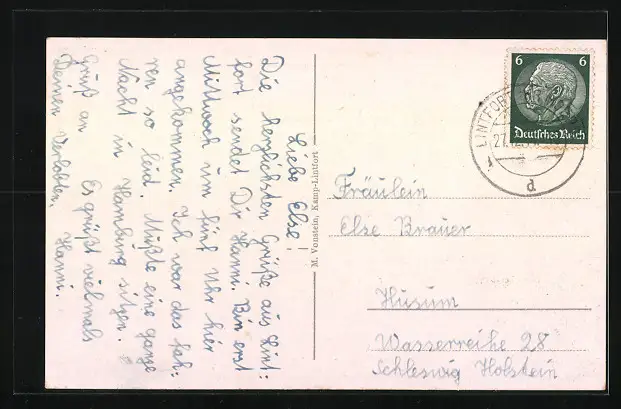 Liebe Else!
Die herzlichsten Grüße aus Lint:
fort sendet Dir Hanni. Bin erst
Mittwoch um fünf Uhr hier
angekommen. Ich war das fah:
ren so leid. Müßte eine ganze
Nacht in Hamburg sitzen.
Es grüßt vielmals
Hanni.
Gruß an
Deinen Verlobten.
M. Vonstein, Kamp-Lintfort
6 6
Deutsches Reich
LINTFORT
d
Fräulein
Else Brauer
Husum
Wasserreihe 28
Schleswig Holstein